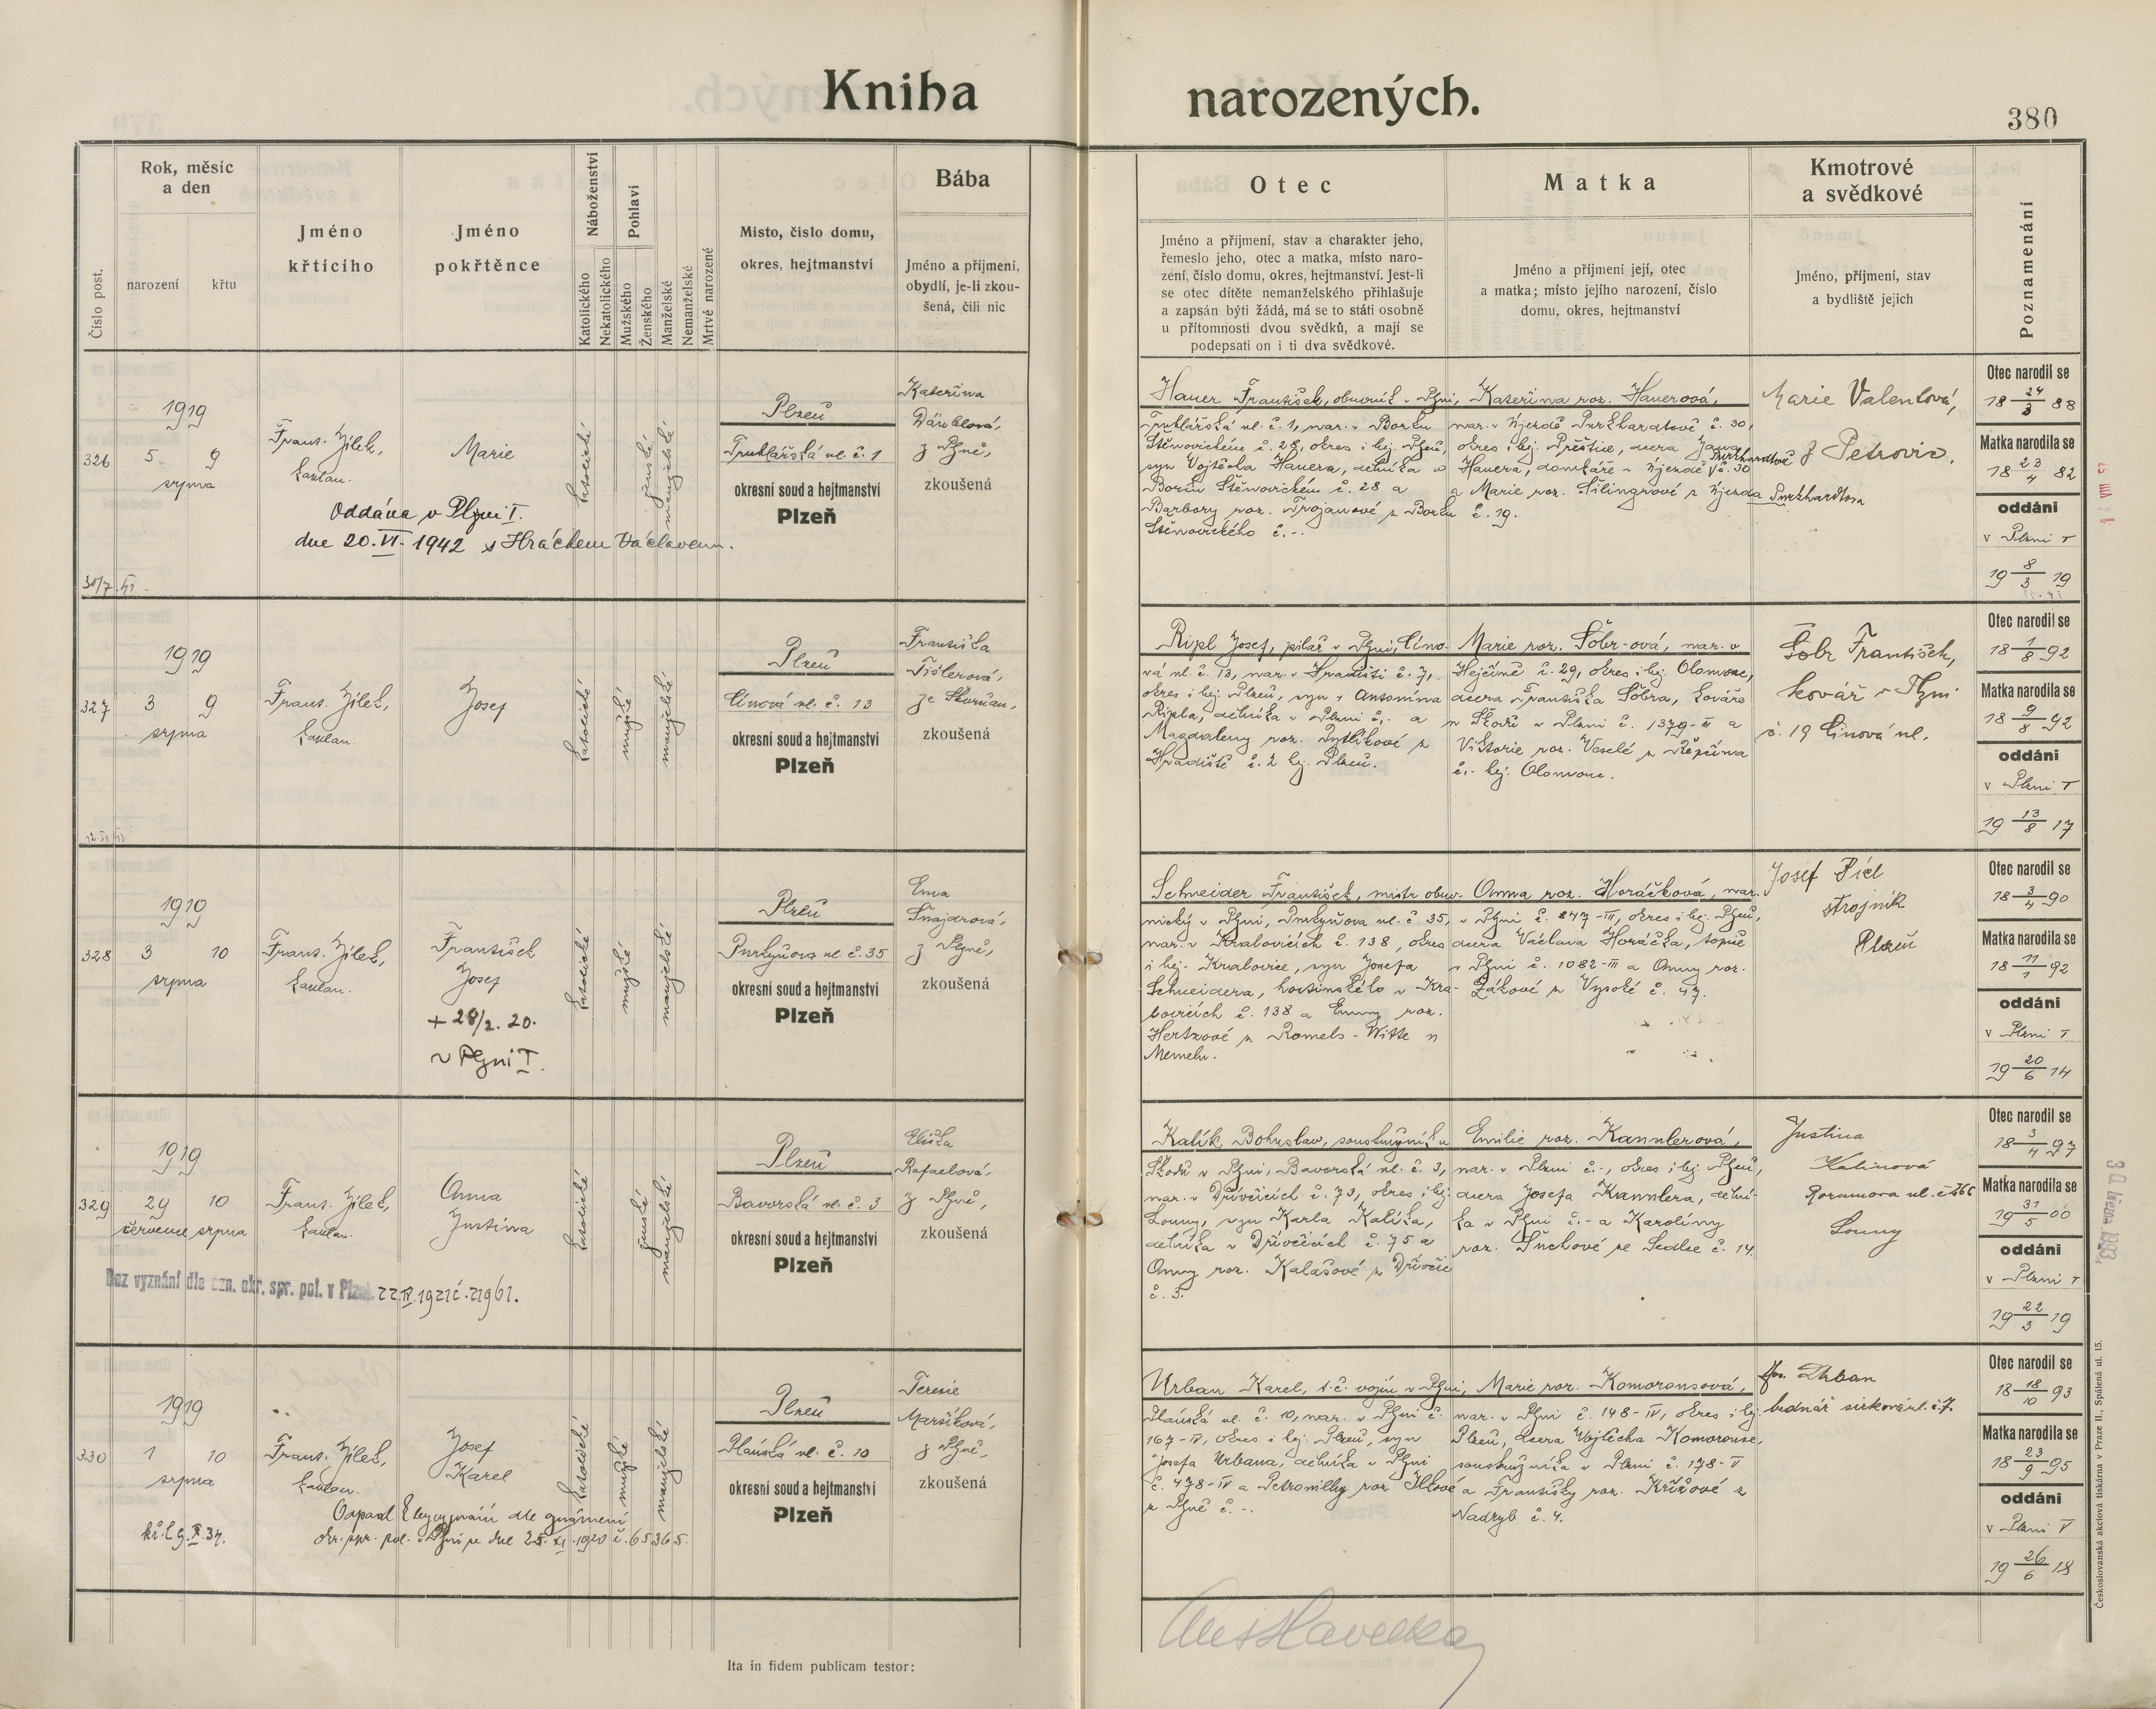 Kniha narozených.
380
Číslo post.
Rok, měsíc
a den
narození
křtu
Jméno
křtícího
Jméno
pokřtěnce
Náboženství
Katolického
Nekatolického
Pohlaví
Mužského
Ženského
Manželské
Nemanželské
Mrtvě narozené
Místo, číslo domu,
okres, hejtmanství
Bába
Jméno a příjmení,
obydlí, je-li zkou-
šená, čili nic
Otec
Jméno a příjmení, stav a charakter jeho,
řemeslo jeho, otec a matka, místo naro-
zení, číslo domu, okres, hejtmanství. Jest-li
se otec dítěte nemanželského přihlašuje
a zapsán býti žádá, má se to státi osobně
u přítomnosti dvou svědků, a mají se
podepsati on i ti dva svědkové.
Matka
Jméno a příjmení její, otec
a matka; místo jejího narození, číslo
domu, okres, hejtmanství
Kmotrové
a svědkové
Jméno, příjmení, stav
a bydliště jejich
Poznamenání
326
1919
5 9
srpna
Frant. Jílek,
kaplan.
Marie
katolické
ženské
manželské
Plzeň
Truhlářská ul. č. 1
okresní soud a hejtmanství
Plzeň
Kateřina
z Plzně,
zkoušená
Oddána v Plzni I.
dne 20. VI. 1942 s Hráčkem Václavem.
Hauer František, obuvník v Plzni,
Truhlářská ul. č. 1, nar. v Borku
Štěnovickém č. 28, okres i hej. Plzeň,
syn Vojtěcha Hauera, dělníka v
Borku Štěnovickém č. 28 a
Barbory roz. Trojanové z Borku
Štěnovického č. -.
Kateřina roz. Hauerová,
nar. v Újezdě Purkhardtově č. 30,
okres i hej. Přeštice, dcera Jana
Hauera, domkáře v Újezdě Purkhardtově č. 30
a Marie roz. Šilingrové z Újezda Purkhardtova
č. 19.
Marie Valentová,
z Petrovic.
Otec narodil se
18 24/3 88
Matka narodila se
18 23/4 82
oddáni
v Plzni I
19 8/3 19
327
1919
3 9
srpna
Frant. Jílek,
kaplan.
Josef
katolické
mužské
manželské
Plzeň
Línová ul. č. 13
okresní soud a hejtmanství
Plzeň
Františka
Tišlerová,
ze Skvrňan,
zkoušená
Ripl Josef, pilař v Plzni, Líno-
vá ul. č. 13, nar. v Hradišti č. 7,
okres i hej. Plzeň, syn Antonína
Ripla, dělníka v Plzni č. - a
Magdaleny roz. Pytlíkové z
Hradiště č. 2 hej. Plzeň.
Marie roz. Šobr-ová, nar. v
Hejčíně č. 29, okres i hej. Olomouc,
dcera Františka Šobra, kováře
u Škodů v Plzni č. 1379-III a
Viktorie roz. Veselé z Řepčína
č. - hej. Olomouc.
Šobr František,
kovář v Plzni
č. 19 Línová ul.
Otec narodil se
18 1/8 92
Matka narodila se
18 9/8 92
oddáni
v Plzni I
19 13/8 17
328
1919
3 10
srpna
Frant. Jílek,
kaplan.
František
Josef
+ 28/2. 20.
v Plzni I.
katolické
mužské
manželské
Plzeň
Purkyňova ul. č. 35
okresní soud a hejtmanství
Plzeň
Ema
Šnajdrová,
z Plzně,
zkoušená
Schneider František, mistr obuv-
nický v Plzni, Purkyňova ul. č. 35,
nar. v Kralovicích č. 138, okres
i hej. Kralovice, syn Josefa
Schneidera, hostinského v Kra-
lovicích č. 138 a Emmy roz.
Hertzové z Romels-Witte u
Memelu.
Anna roz. Horáčková, nar.
v Plzni č. 847-III, okres i hej. Plzeň,
dcera Václava Horáčka, topiče
v Plzni č. 1082-III a Anny roz.
Žákové z Vysoké č. 47.
Josef Pícl
strojník
Plzeň
Otec narodil se
18 3/4 90
Matka narodila se
18 11/1 92
oddáni
v Plzni I
19 20/6 14
329
1919
29 10
července srpna
Frant. Jílek,
kaplan.
Anna
Justina
katolické
ženské
manželské
Plzeň
Bavorská ul. č. 3
okresní soud a hejtmanství
Plzeň
Eliška
Rafaelová,
z Plzně,
zkoušená
Bez vyznání dle ozn. okr. spr. pol. v Plzni 22 IV. 1921 č. 21961.
Kalík Bohuslav, soustružník u
Škodů v Plzni, Bavorská ul. č. 3,
nar. v Dřívčicích č. 73, okres i hej.
Louny, syn Karla Kalíka,
dělníka v Dřívčicích č. 75 a
Anny roz. Kalašové z Dřívčic
č. 5.
Emilie roz. Kannlerová,
nar. v Plzni č. -, okres i hej. Plzeň,
dcera Josefa Kannlera, dělní-
ka v Plzni č. - a Karolíny
roz. Suchové ze Sedlce č. 14.
Justina
Kalinová
Rozumova ul. č. 266
Louny
Otec narodil se
18 3/4 97
Matka narodila se
19 31/5 00
oddáni
v Plzni I
19 22/3 19
330
1919
1 10
srpna
Frant. Jílek,
kaplan.
Josef
Karel
katolické
mužské
manželské
Plzeň
Plánská ul. č. 10
okresní soud a hejtmanství
Plzeň
Terezie
Maršíková,
z Plzně,
zkoušená
dle oznámení
okr. spr. pol. v Plzni ze dne 25. XI. 1920 č. 65365.
Urban Karel, t. č. vojín v Plzni,
Plánská ul. č. 10, nar. v Plzni č.
167-IV, okres i hej. Plzeň, syn
Josefa Urbana, dělníka v Plzni
č. 478-IV a Petronilly roz. Illové
z Plzně č. -.
Marie roz. Komorousová,
nar. v Plzni č. 148-IV, okres i hej.
Plzeň, dcera Vojtěcha Komorouse,
soustružníka v Plzni č. 178-V
a Františky roz. Křížové z
Nadryb č. 4.
Jos. Urban
bednář sirková ul. č. 7.
Otec narodil se
18 18/10 93
Matka narodila se
18 23/9 95
oddáni
v Plzni V
19 26/6 18
Ita in fidem publicam testor:
Českoslovanská akciová tiskárna v Praze II., Spálená ul. 15.